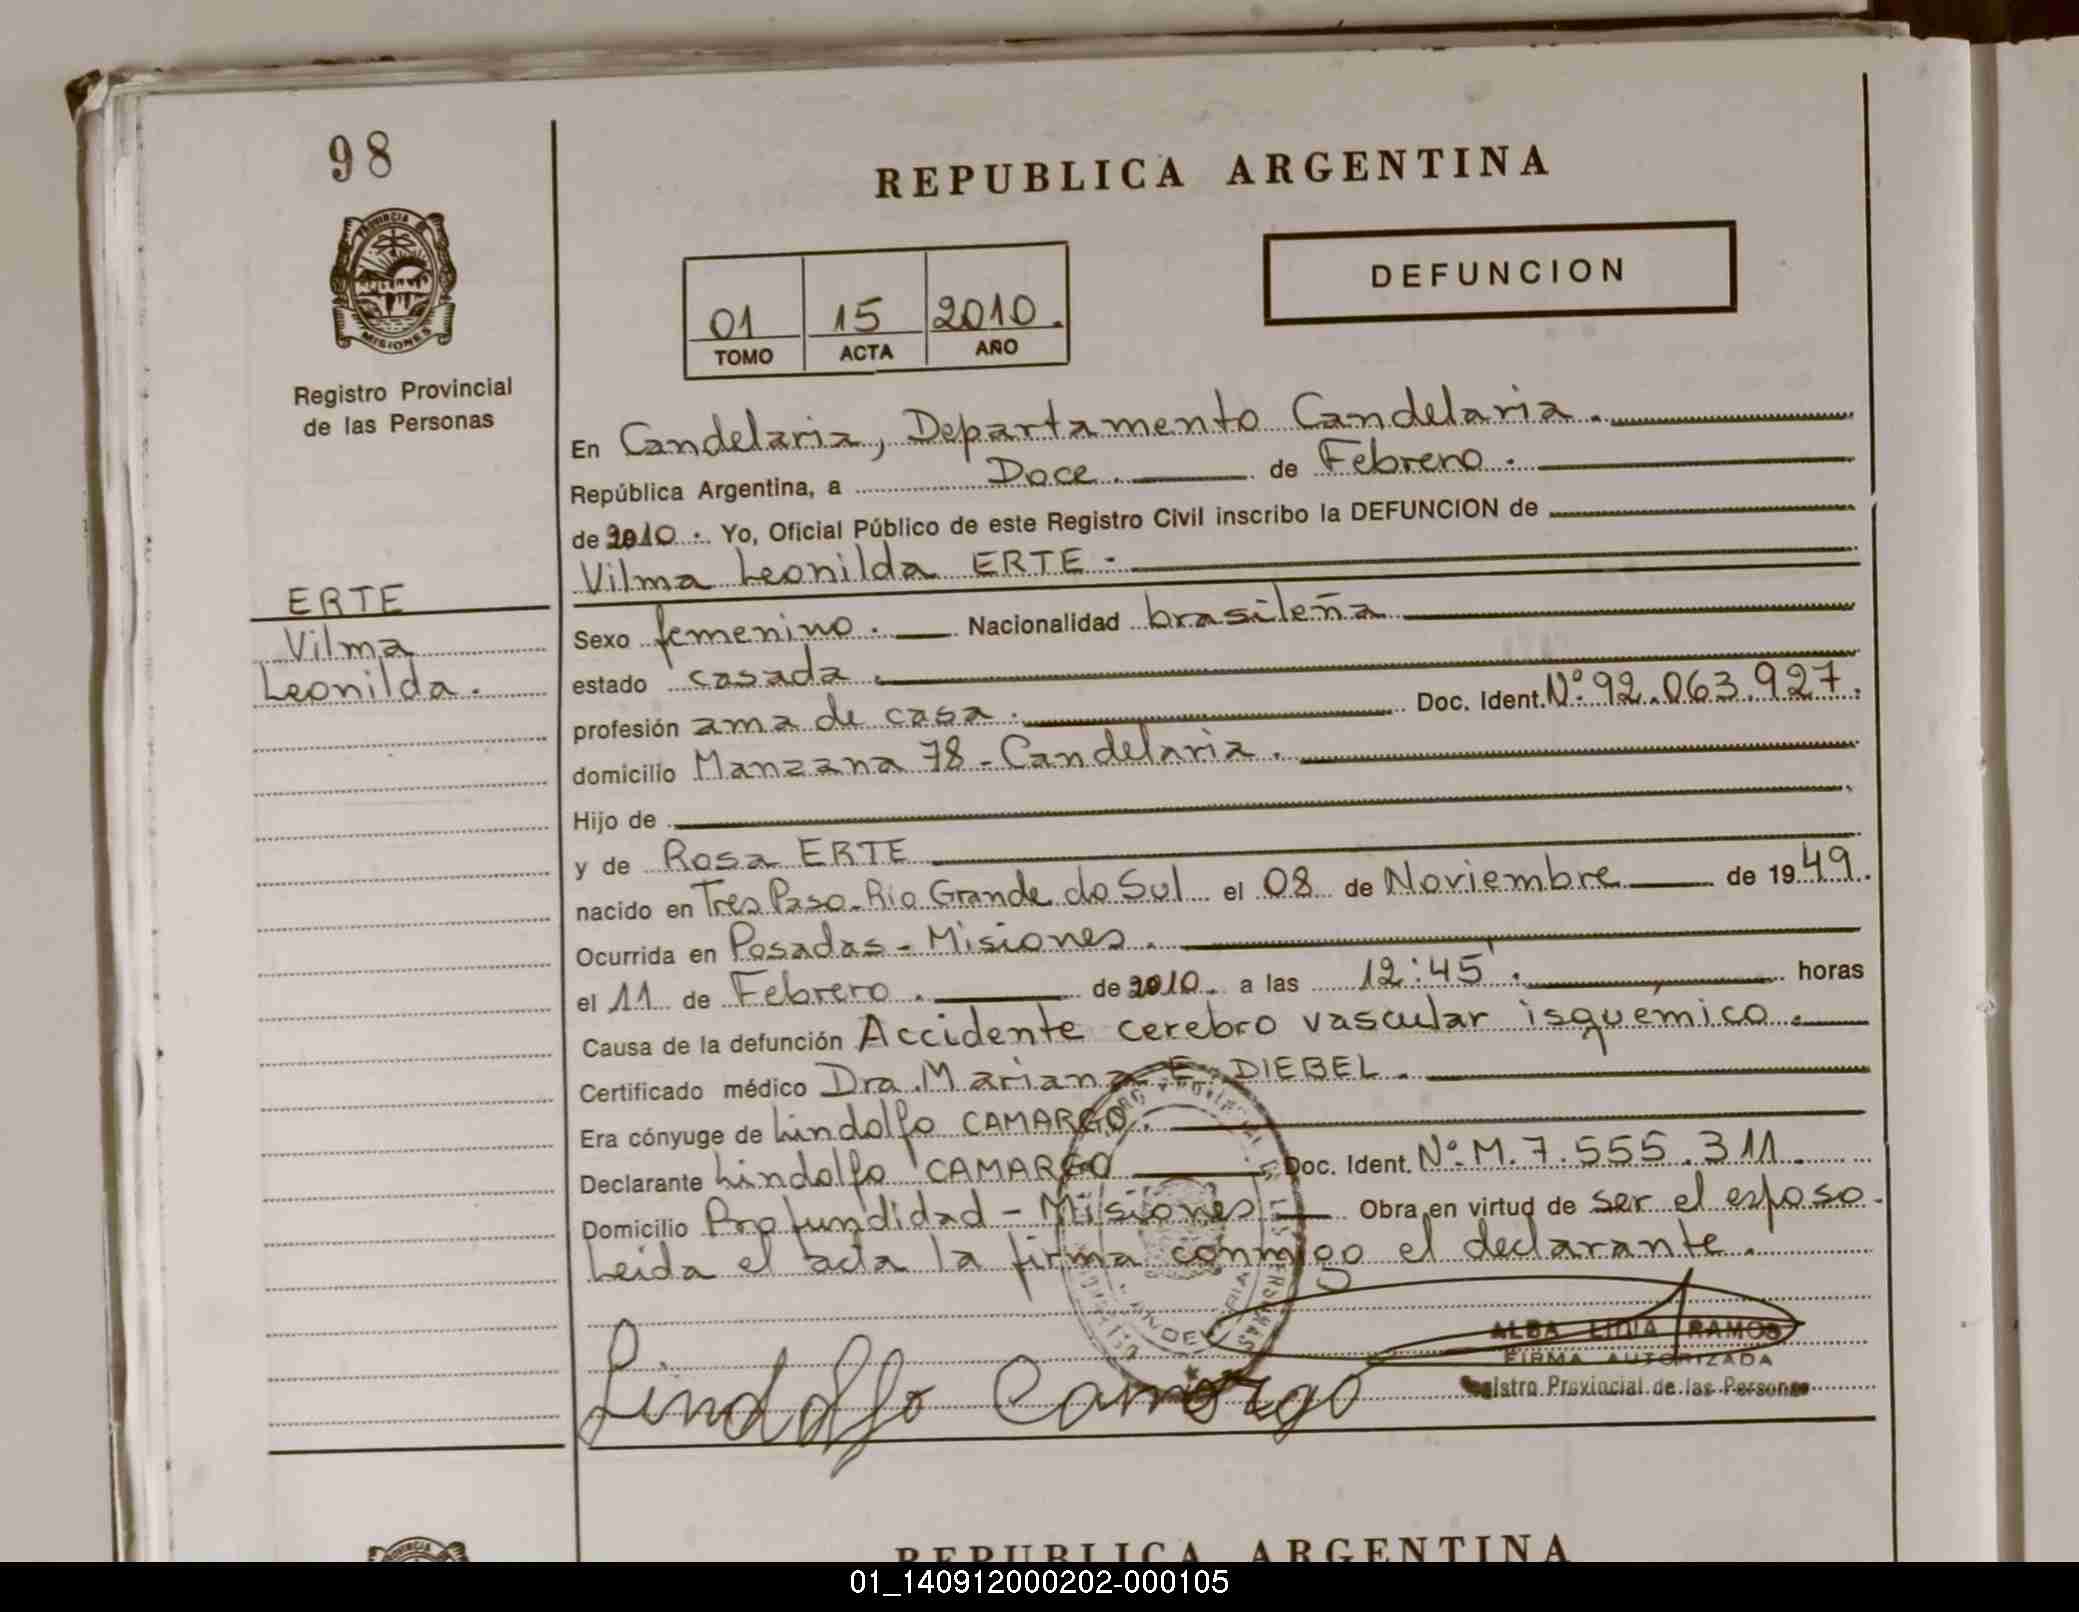 98
PROVINCIA
MISIONES
Registro Provincial
de las Personas
ERTE
Vilma
Leonilda.
REPUBLICA ARGENTINA
DEFUNCION
01 15 2010.
TOMO ACTA AÑO
En Candelaria, Departamento Candelaria.
República Argentina, a Doce. de Febrero.
de 2010. Yo, Oficial Público de este Registro Civil inscribo la DEFUNCION de
Vilma Leonilda ERTE.
Sexo femenino. Nacionalidad brasileña
estado casada.
profesión ama de casa. Doc. Ident. Nº 92.063.927.
domicilio Manzana 78-Candelaria.
Hijo de
y de Rosa ERTE
nacido en Tres Paso-Rio Grande do Sul el 08 de Noviembre de 1949.
Ocurrida en Posadas-Misiones.
el 11 de Febrero. de 2010. a las 12:45'. horas
Causa de la defunción Accidente cerebro vascular isquémico.
Certificado médico Dra. Mariana E. DIEBEL.
Era cónyuge de Lindolfo CAMARGO.
Declarante Lindolfo CAMARGO Doc. Ident. Nº M. 7.555.311.
Domicilio Profundidad-Misiones Obra en virtud de ser el esposo.
Leida el acta la firma conmigo el declarante.
Lindolfo Camargo
ALBA LIDIA RAMOS
FIRMA AUTORIZADA
Registro Provincial de las Personas
REPUBLICA ARGENTINA
01_140912000202-000105